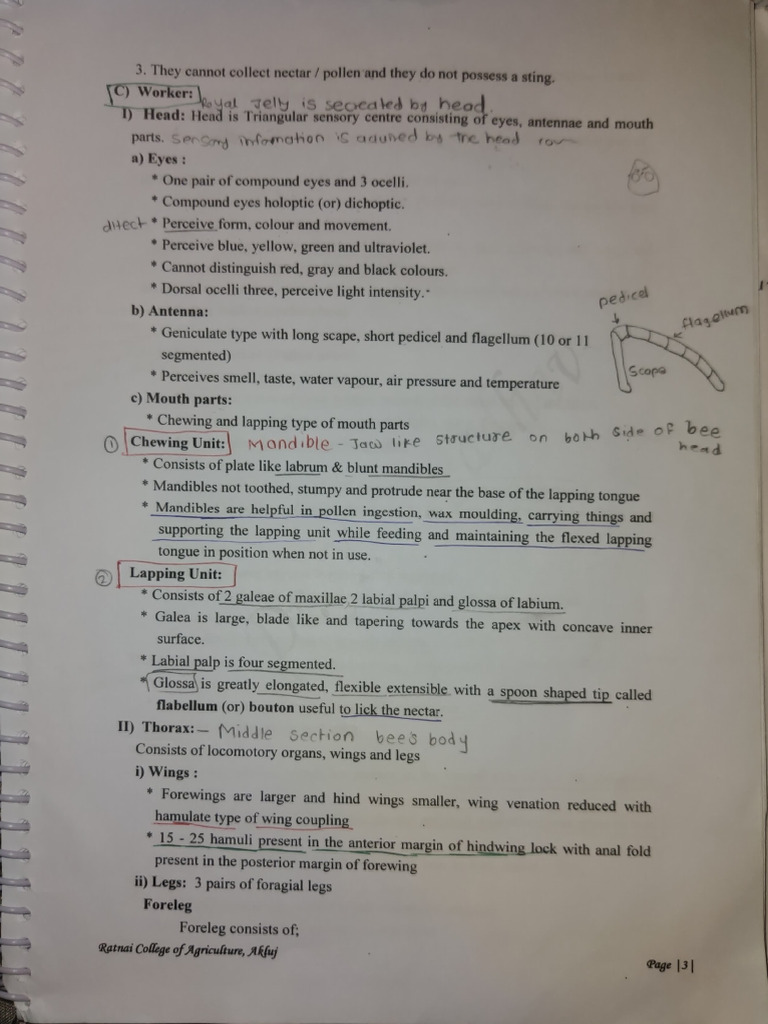 3. They cannot collect nectar / pollen and they do not possess a sting.
C) Worker: Royal Jelly is secreated by head.
I) Head: Head is Triangular sensory centre consisting of eyes, antennae and mouth
parts. Sensory infomation is by the head
a) Eyes :
* One pair of compound eyes and 3 ocelli.
* Compound eyes holoptic (or) dichoptic.
* Perceive form, colour and movement.
* Perceive blue, yellow, green and ultraviolet.
* Cannot distinguish red, gray and black colours.
* Dorsal ocelli three, perceive light intensity.
b) Antenna:
* Geniculate type with long scape, short pedicel and flagellum (10 or 11
segmented)
* Perceives smell, taste, water vapour, air pressure and temperature
pedicel
flagellum
Scape
c) Mouth parts:
* Chewing and lapping type of mouth parts
① Chewing Unit: Mandible - Jaw like structure on both side of bee
head
* Consists of plate like labrum & blunt mandibles
* Mandibles not toothed, stumpy and protrude near the base of the lapping tongue
* Mandibles are helpful in pollen ingestion, wax moulding, carrying things and
supporting the lapping unit while feeding and maintaining the flexed lapping
tongue in position when not in use.
② Lapping Unit:
* Consists of 2 galeae of maxillae 2 labial palpi and glossa of labium.
* Galea is large, blade like and tapering towards the apex with concave inner
surface.
* Labial palp is four segmented.
* Glossa is greatly elongated, flexible extensible with a spoon shaped tip called
flabellum (or) bouton useful to lick the nectar.
II) Thorax: - Middle section bee's body
Consists of locomotory organs, wings and legs
i) Wings :
* Forewings are larger and hind wings smaller, wing venation reduced with
hamulate type of wing coupling
* 15 - 25 hamuli present in the anterior margin of hindwing lock with anal fold
present in the posterior margin of forewing
ii) Legs: 3 pairs of foragial legs
Foreleg
Foreleg consists of;
Ratnai College of Agriculture, Akluj
Page |3|